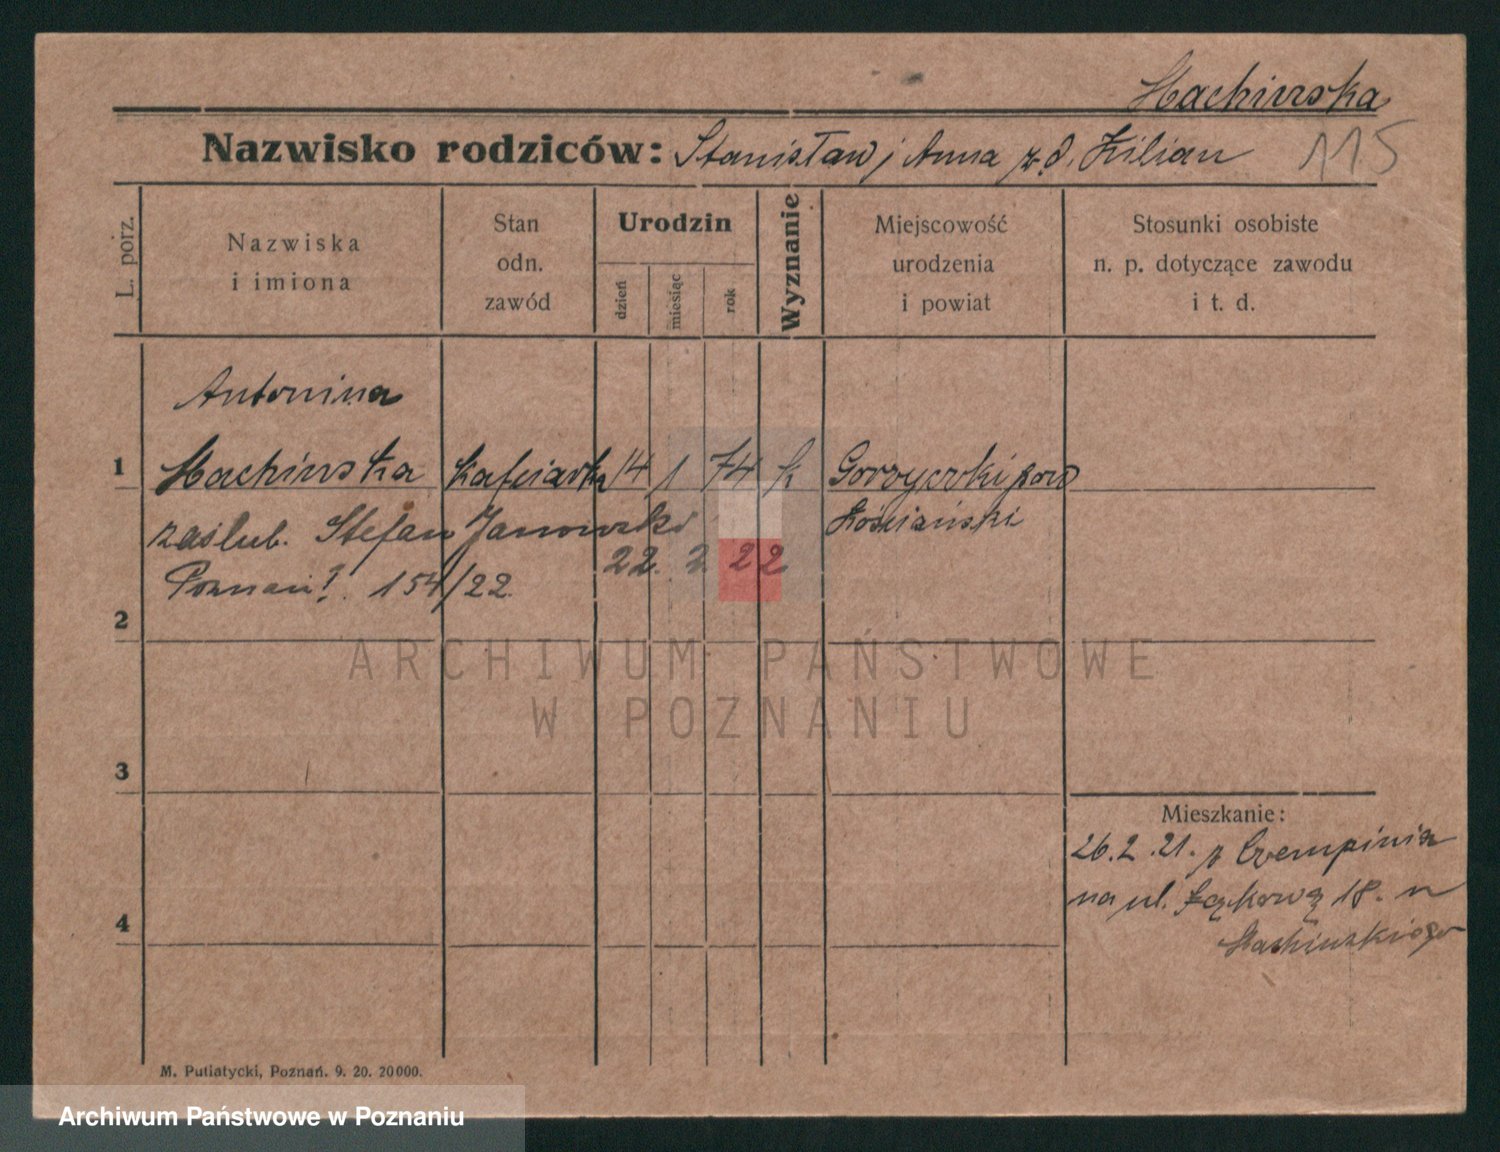 Hachinska
Nazwisko rodziców: Stanisław i Anna z d. Kilian 115
L. porz.
Nazwiska
i imiona
Stan
odn.
zawód
Urodzin
dzień
miesiąc
rok
Wyznanie
Miejscowość
urodzenia
i powiat
Stosunki osobiste
n. p. dotyczące zawodu
i t. d.
Antonina
1 Hachinska 14 1 74 k Gorzyczki pow
zaślub. Stefan Janowski Kościański
22. 2 22
Poznań 154/22.
2
ARCHIWUM PAŃSTWOWE
W POZNANIU
3
Mieszkanie:
26.2.21. z Czempinia
na ul. 18.
4
M. Putiatycki, Poznań. 9. 20. 20000.
Archiwum Państwowe w Poznaniu